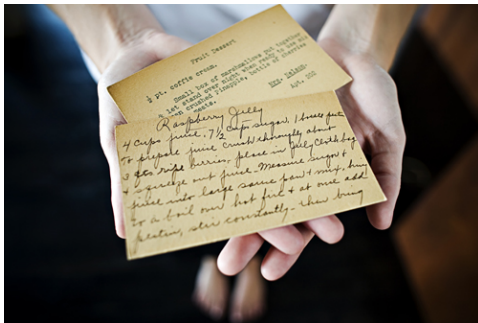 Fruit Dessert
½ pt. coffie cream.
Small box of marshmallows cut together
let stand over night when ready to use mix
can crushed Pinapple, bottle of cherries
meats.
Mrs. Nelson.
Apt. 302
Raspberry Jelly
4 cups juice, 7½ cups sugar, 1 bottle
to prepare juice crush thoroughly about
3 qts. ripe berries, place in jelly cloth bag
& squeeze out juice. Measure sugar &
juice into large sauce pan & mix, bring
to a boil over hot fire & at once add
pectin, stir constantly - then bring